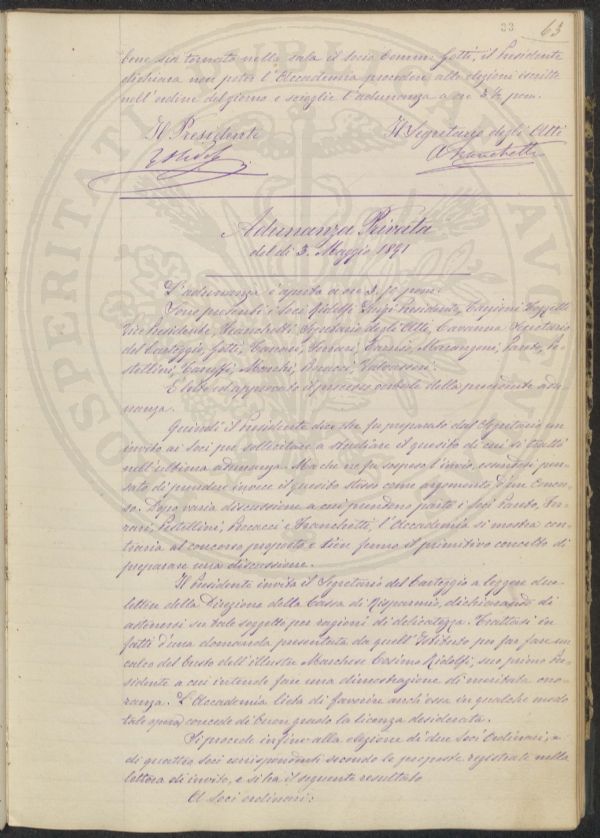 33 63
bene sia tornato nella sala il socio Comm. Gotti, il Presidente
dichiara non poter l'Accademia procedere alle elezioni iscritte
nell'ordine del giorno e scioglie l'adunanza a ore 3½ pom.
Il Presidente Il Segretario degli Atti
A Franchetti
Adunanza Privata
del dì 3. Maggio 1891
L'adunanza è aperta a ore 1. 50 pom.
Sono presenti i Soci Ridolfi Luigi Presidente,
Vice Presidente, Franchetti Segretario degli Atti, Cavanna Segretario
del Carteggio, Gotti, Ferrari, Marangoni, Pareto, Pe-
stellini, Caruffi, Bucacci, Valvassori.
È letto ed approvato il processo verbale della precedente adu-
nanza.
Quindi il Presidente dice che fu preparato dal Segretario un
invito ai Soci per sollecitare a studiare il quesito di cui si trattò
nell'ultima adunanza. Ma che ne fu sospeso l'invio, essendosi pen-
sato di prendere invece il quesito stesso come argomento d'un concor-
so. Dopo varia discussione a cui prendono parte i Soci Pareto, Fer-
rari, Pestellini, Bucacci e Franchetti, l'Accademia si mostra con-
traria al concorso proposto e tien fermo il primitivo concetto di
preparare una discussione.
Il Presidente invita il Segretario del Carteggio a leggere due
lettere della Direzione della Cassa di Risparmio, dichiarando di
astenersi su tale soggetto per ragioni di delicatezza. Trattasi in-
fatti d'una domanda presentata da quell'Istituto per far fare un
calco del busto dell'illustre Marchese Cosimo Ridolfi, suo primo Pre-
sidente a cui intende fare una dimostrazione di meritata ono-
ranza. L'Accademia lieta di favorire anch'essa in qualche modo
tale opera, concede di buon grado la licenza desiderata.
Si procede infine alla elezione di due Soci Ordinari, e
di quattro Soci corrispondenti secondo le proposte registrate nella
lettera di invito, e si ha il seguente resultato
A Soci ordinari: